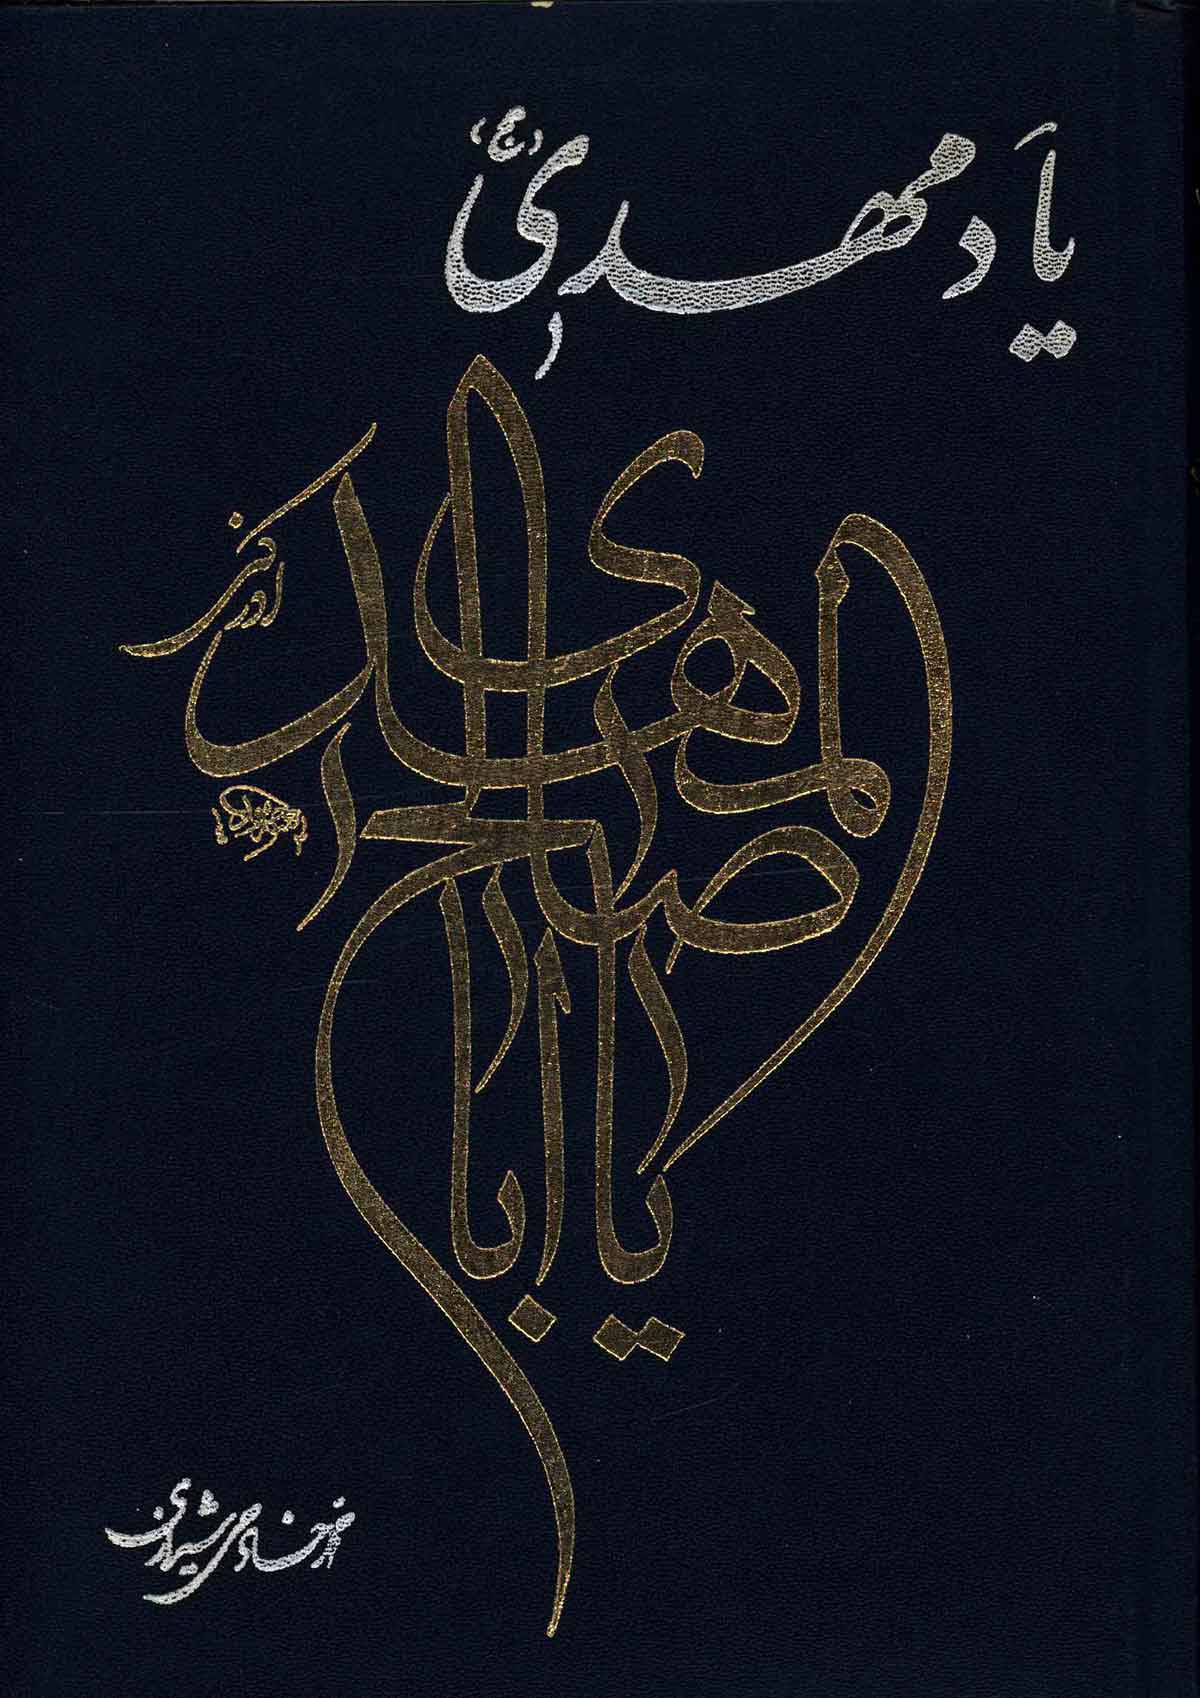 یاد مهدی (عج)
یا اباصالح المهدی
ادرکنی
از خادمی شیرازی